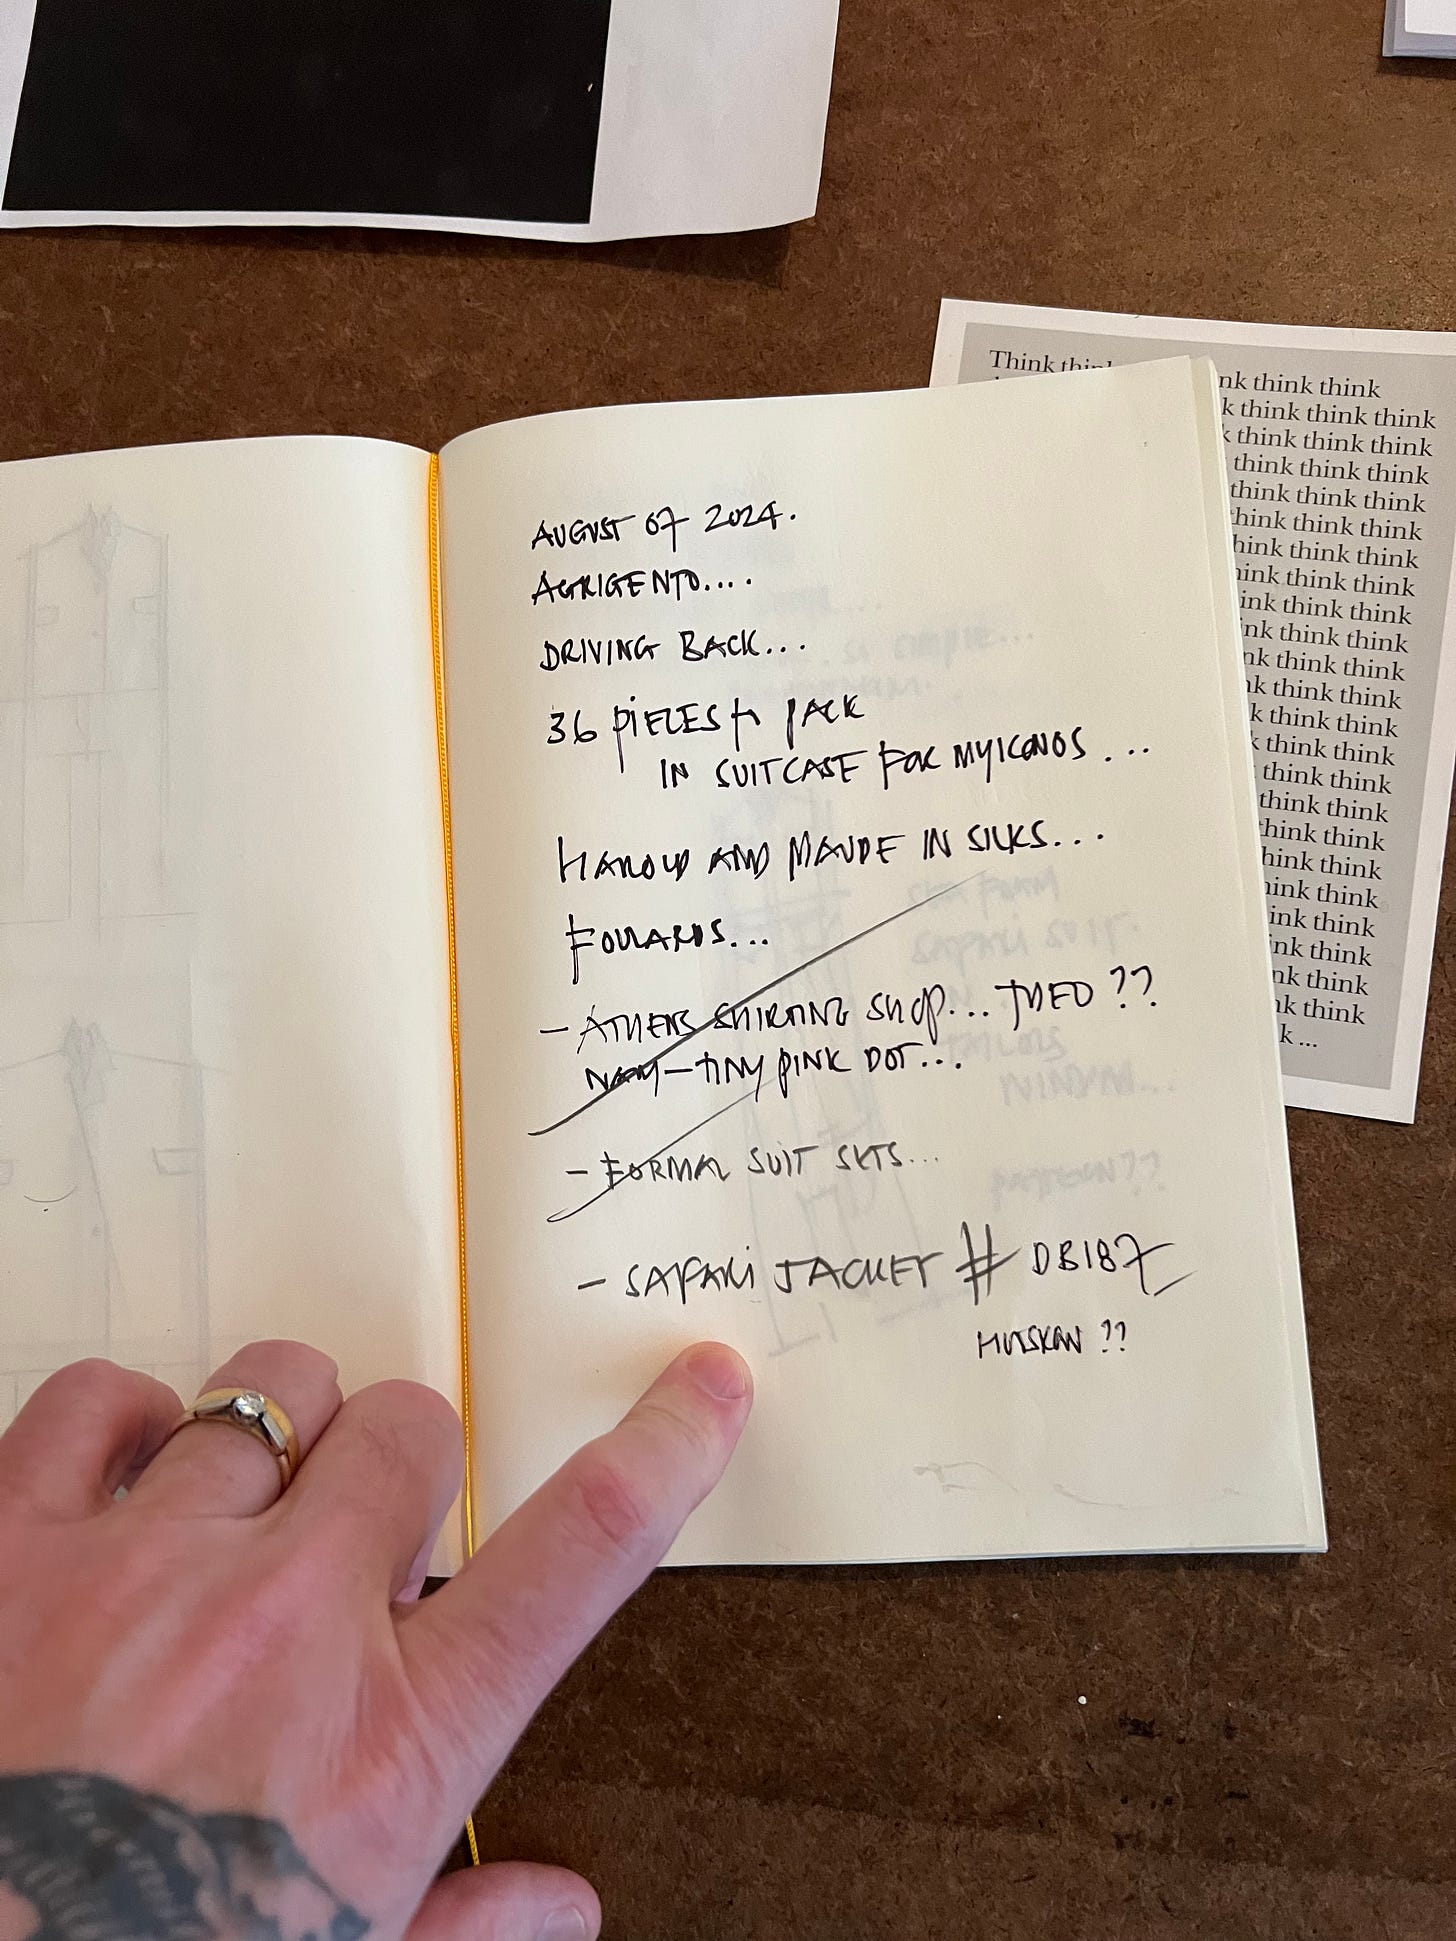 AUGUST 07 2024.
AGRIGENTO....
DRIVING BACK...
36 PIECES to PACK
IN SUITCASE FOR MYKONOS ...
HAROLD AND MAUDE IN SILKS...
FOULARDS...
- ATHENS SHIRTING SHOP... THEO ??
NAVY-TINY PINK DOT...
- FORMAL SUIT SETS...
- SAFARI JACKET # DB187
??
Think think
nk think think
k think think think
k think think think
think think think
think think think
think think think
hink think think
hink think think
ink think think
ink think think
nk think think
k think think
k think think
k think think
think think
think think
think think
hink think
hink think
ink think
ink think
nk think
k think
k ...